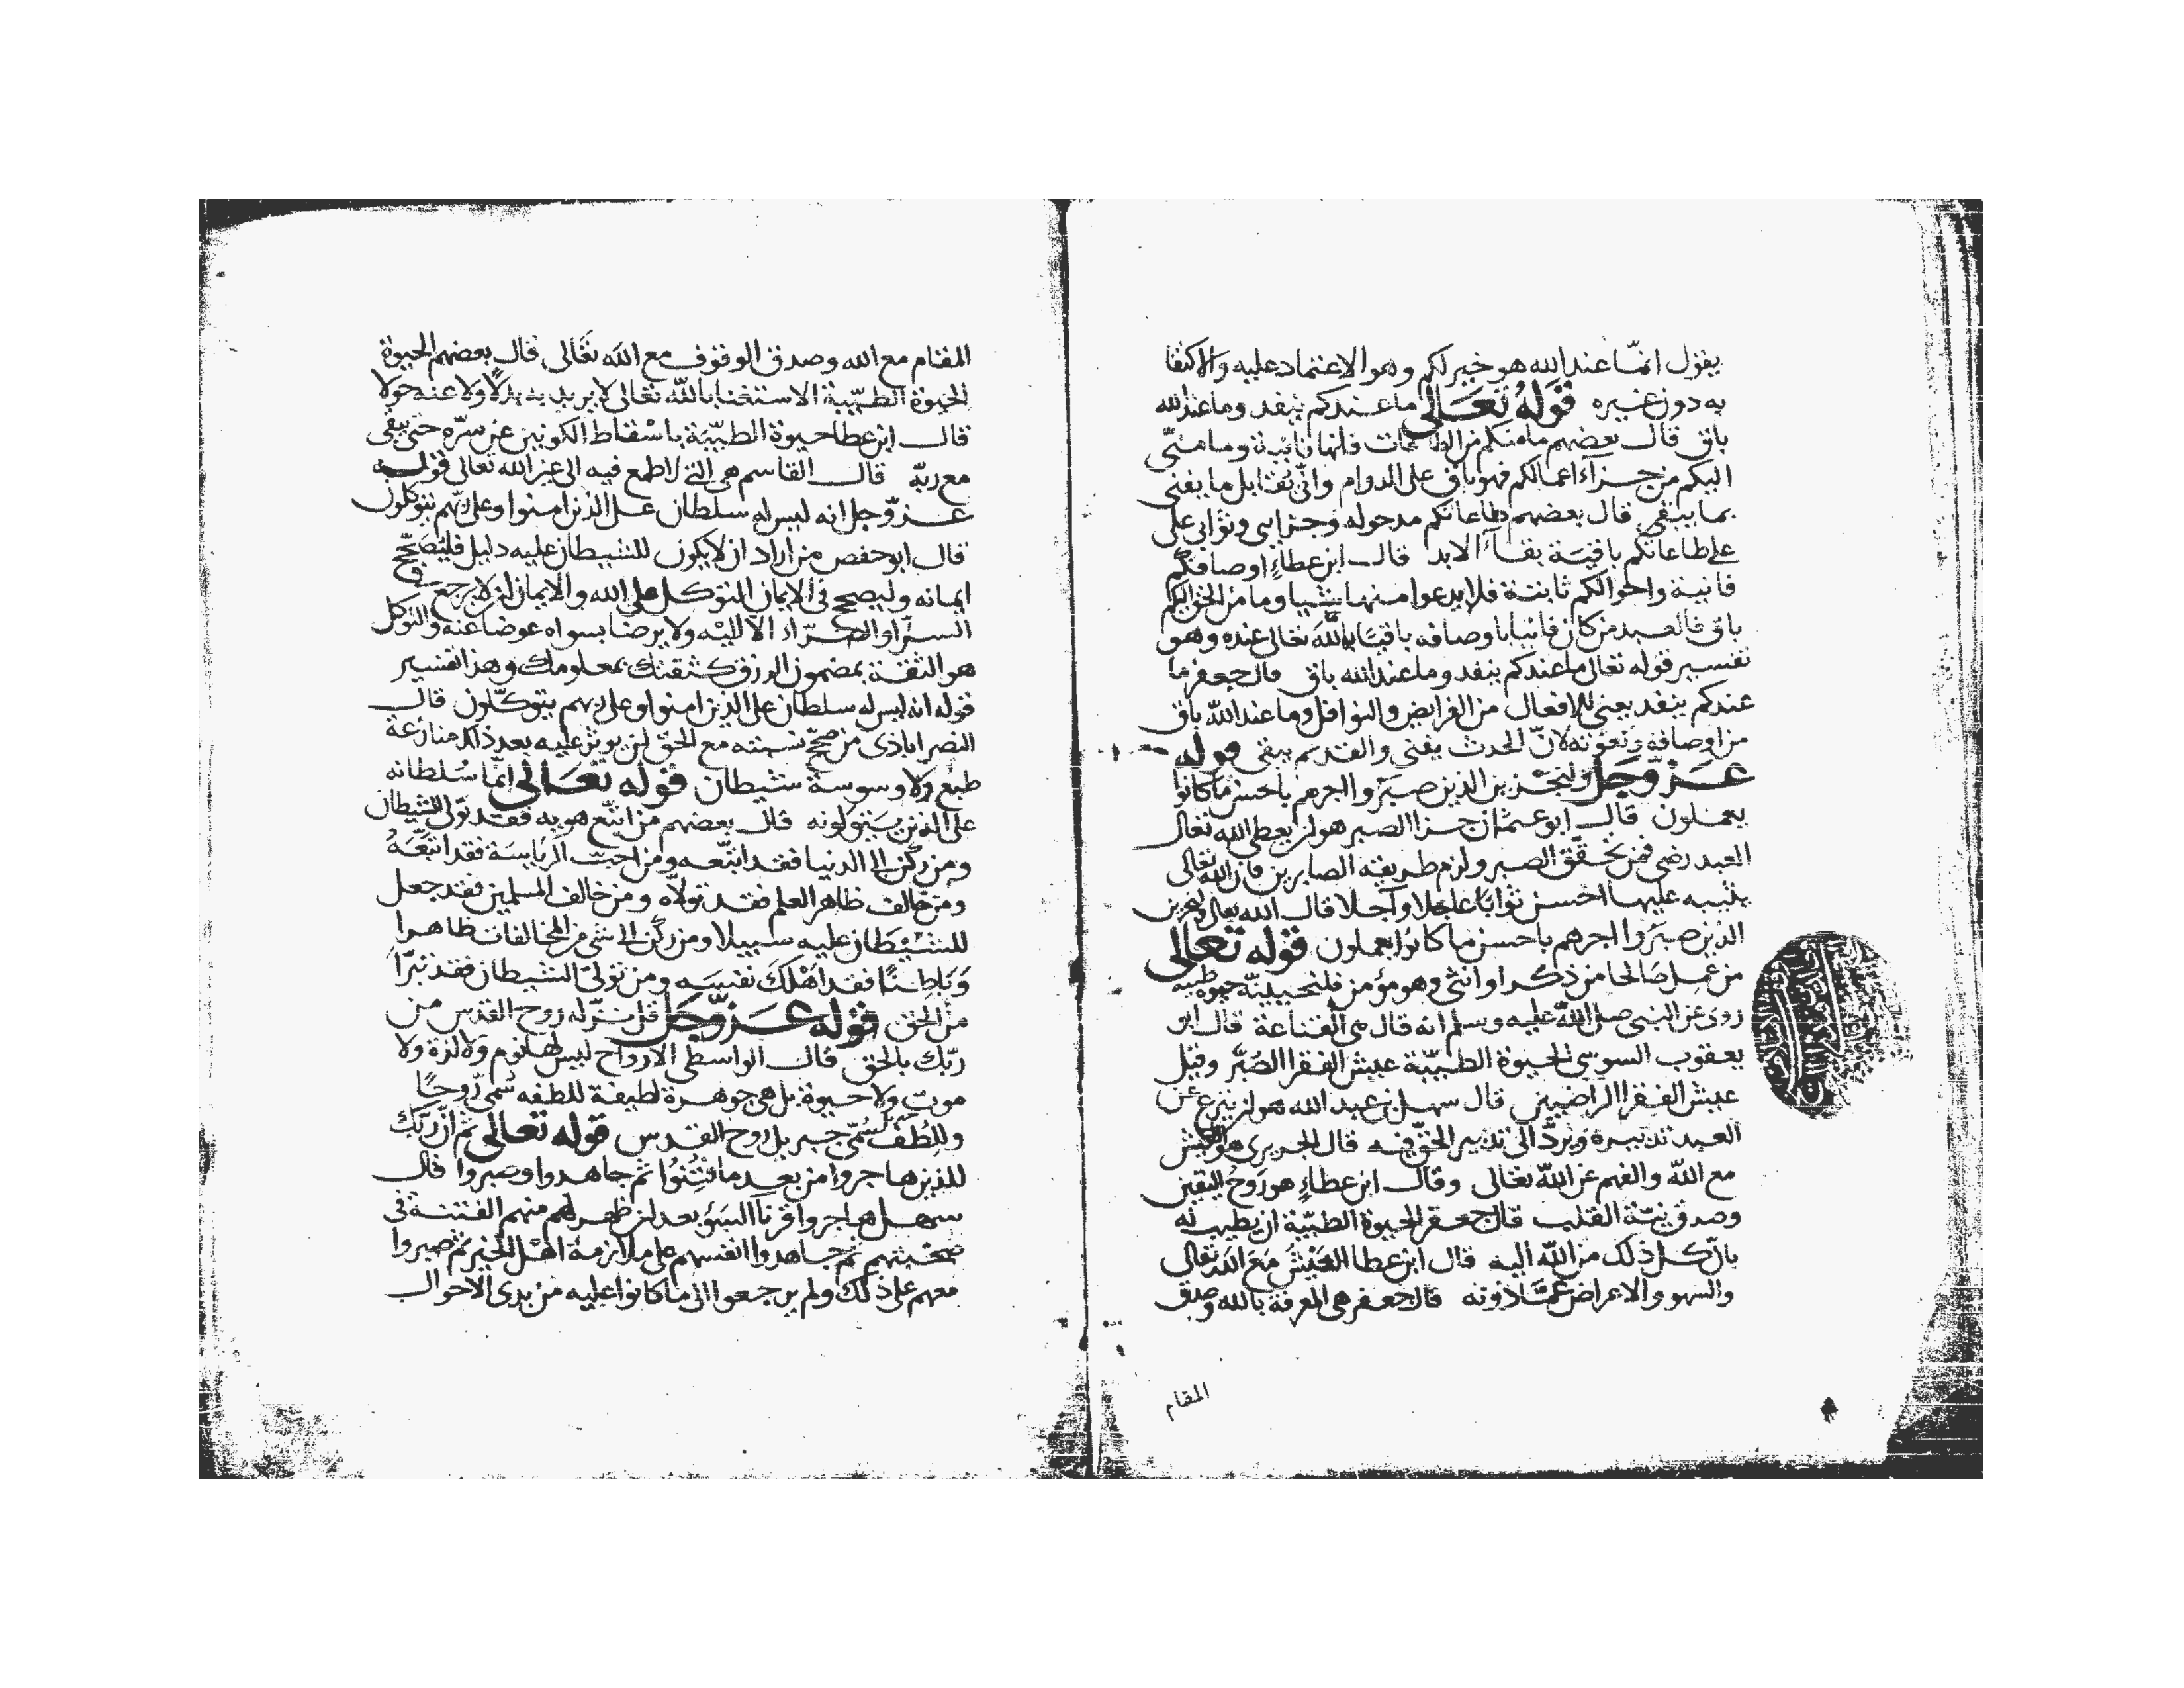 يقول انما عند الله هو خير لكم وهو الاعتماد عليه والاكتفا
به دون غيره قوله تعالى ما عندكم ينفد وما عند الله
باق قال بعضهم ما منكم من الطاعات فانها فانية وما منّى
اليكم من جزاء اعمالكم فهو باق على الدوام وانّى يقابل ما يفنى
بما يبقى قال بعضهم طاعاتكم مدخوله وجزايى وثوابى على
على طاعاتكم باقية بقاء الابد قال ابن عطاء اوصافكم
فانية واحوالكم ثابتة فلا يدعوا منها شيا وما من الحق اليكم
باق فالعبد من كان فانيا باوصافه باقيا بالله تعالى عنده وهو
تفسير قوله تعالى ما عندكم ينفد وما عند الله باق قال جعفر ما
عندكم ينفد يعنى الافعال من الفرايض والنوافل وما عند الله باق
من اوصافه ونعوته لانّ الحدث يفنى والقديم يبقى قوله
عز وجل ولنجزين الذين صبروا اجرهم باحسن ما كانوا
يعملون قال ابو عثمان جزا الصبر هو ان يعطى الله تعالى
العبد رضى فمن تحقّق الصبر ولزم طريقة الصابرين فان الله تعالى
يثيبه عليها احسن ثوابا عاجلا وآجلا قال الله تعالى ولنجزين
الذين صبروا اجرهم باحسن ما كانوا يعملون قوله تعالى
من عمل صالحا من ذكر او انثى وهو مؤمن فلنحيينّه حيوة طيبه
روى عن النبى صلى الله عليه وسلم انه قال هى القناعة قال ابو
يعقوب السوسى الحيوة الطيّبة عيش الفقرا الصُبَّر وقيل
عيش الفقرا الراضيين قال سهل بن عبد الله هو ان ينزع عن
العبد تدبيره ويردّ الى تدبير الحقّ فيه قال الجريرى هو العيش
مع الله والفهم عن الله تعالى وقال ابن عطاء هو روح اليقين
وصدق نيّة القلب قال جعفر الحيوة الطيّبة ان يطيب له
بانّ كل ذلك من الله اليه قال ابن عطا العيش مع الله تعالى
والسهو والاعراض عمّا دونه قال جعفر هى المعرفة بالله وصدق
المقام
المقام مع الله وصدق الوقوف مع الله تعالى قال بعضهم الحيوة
الحيوة الطيّبة الاستغنا بالله تعالى لا يريد به بدلا ولا عنه حولا
قال ابن عطا حيوة الطيّبة باسقاط الكونين عن سرّه حتى يبقى
مع ربّه قال القاسم هى التى لا طمع فيه الى غير الله تعالى قوله
عز وجل انه ليس له سلطان على الذين امنوا وعلى ربّهم يتوكلون
قال ابو حفص من اراد ان لا يكون للشيطان عليه دليل فليصحّح
ايمانه وليصحح فى الايمان التوكل على الله والايمان ان لا يرجع فى
السرّا والضرّاء الا اليه ولا يرضا بسواه عوضا عنه والتوكل
هو الثقة بمضمون الرزق كثقتك بمعلومك وهذا تفسير
قوله انه ليس له سلطان على الذين امنوا وعلى ربهم يتوكّلون قال
النصراباذى من صحّح نسبته مع الحقّ لن يوثر عليه بعد ذلك منازعة
طبع ولا وسوسة شيطان قوله تعالى انّما سلطانه
على الذين يتولونه قال بعضهم من اتّبع هويه فقد تولّى الشيطان
ومن ركن الى الدنيا فقد اتّبعه ومن احبّ الرياسة فقد اتّبعه
ومن خالف ظاهر العلم فقد تولّاه ومن خالف المسلمين فقد جعل
للشيطان عليه سبيلا ومن ركن الى شى من المخالفات ظاهرا
وباطنًا فقد اهلك نفسه ومن تولّى الشيطان فقد تبرّا
من الحق قوله عز وجل قل نزّله روح القدس من
ربّك بالحق قال الواسطى الارواح ليس لها نوم ولا لذة ولا
موت ولا حيوة بل هى جوهرة لطيفة للطفه سُمّى روحًا
وللطف سُمّى جبريل روح القدس قوله تعالى ثم انّ ربّك
للذين هاجروا من بعد ما فُتِنُوا ثم جاهدوا وصبروا قال
سهل هاجروا قرنآ السوء بعد ان ظهر لهم منهم الفتنة فى
صحبتهم ثم جاهدوا انفسهم على ملازمة اهل الخير ثم صبروا
معهم على ذلك ولم يرجعوا الى ما كانوا عليه من بدى الاحوال